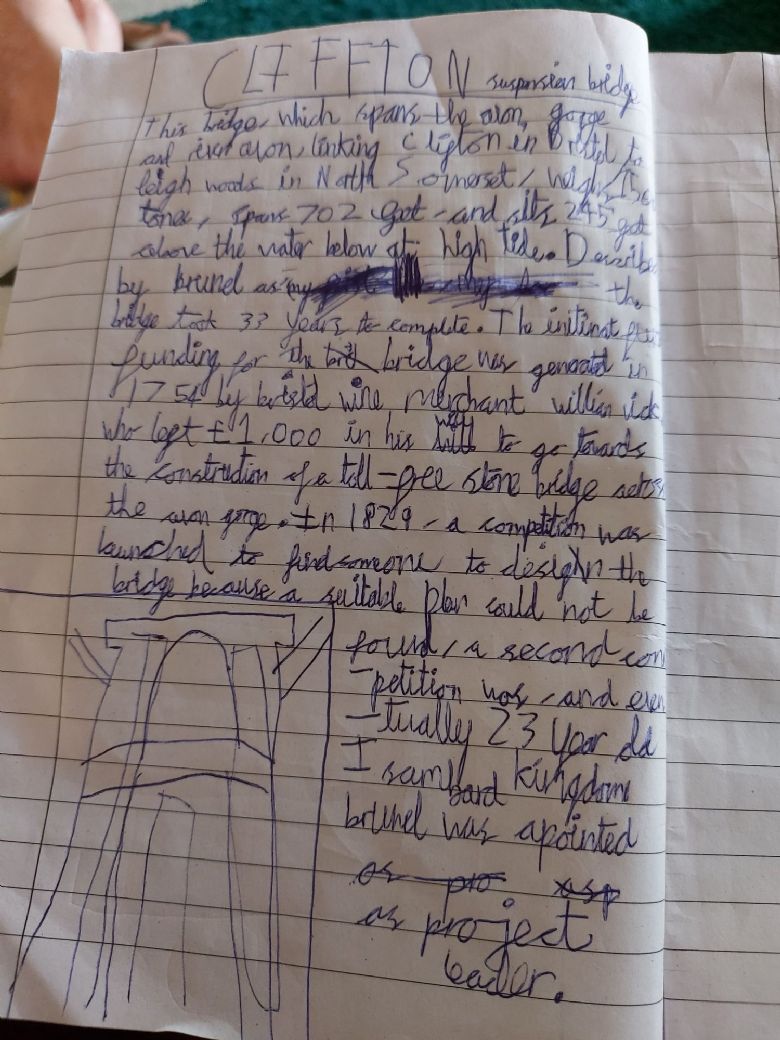 CLIFFTON suspension bridge
This bridge, which spans the avon, gorge
and river avon, linking Clifton in Bristol to
leigh woods in North Somerset, weighs 150
tones, spans 702 foot - and sits 245 foot
above the water below at high tide. Describe
by brunel as my the
bridge took 33 years to complete. The
funding for the bridge was generated in
1754 by bristol wine merchant william vick
who left £1,000 in his will to go towards
the construction of a toll-free stone bridge across
the avon gorge. In 1829 - a competition was
launched to find someone to design the
bridge because a suitable plan could not be
found, a second com
-petition was - and even
-tually 23 year old
Isambard kingdom
brunel was apointed
as project
leader.